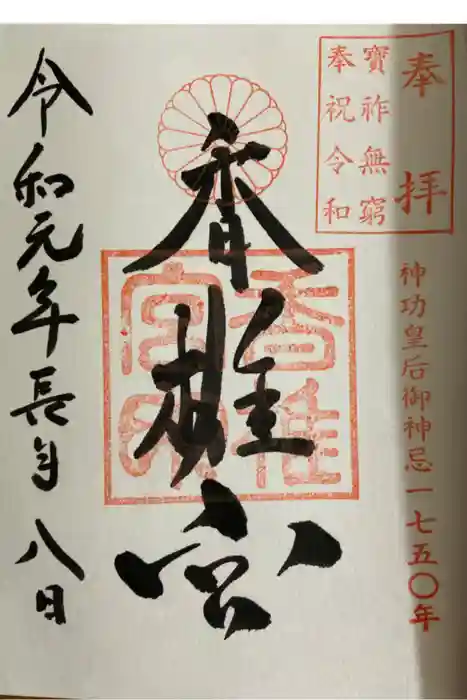 奉拝
寶祚無窮
奉祝令和
神功皇后御神忌一七五〇年
香椎宮
香椎宮印
令和元年長月八日